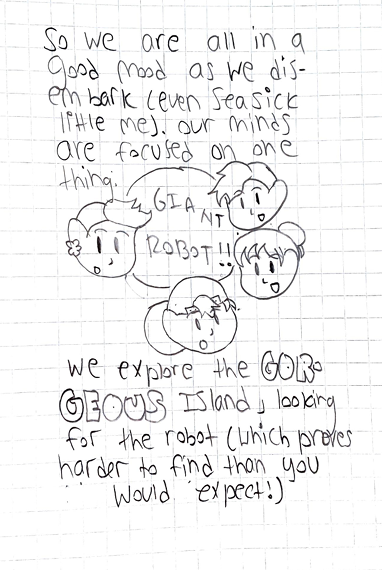 So we are all in a
good mood as we dis-
embark (even seasick
little me). our minds
are focused on one
thing.
GIANT
ROBOT!!
We explore the GOR-
GEOUS Island, looking
for the robot (which proves
harder to find than you
would expect!)